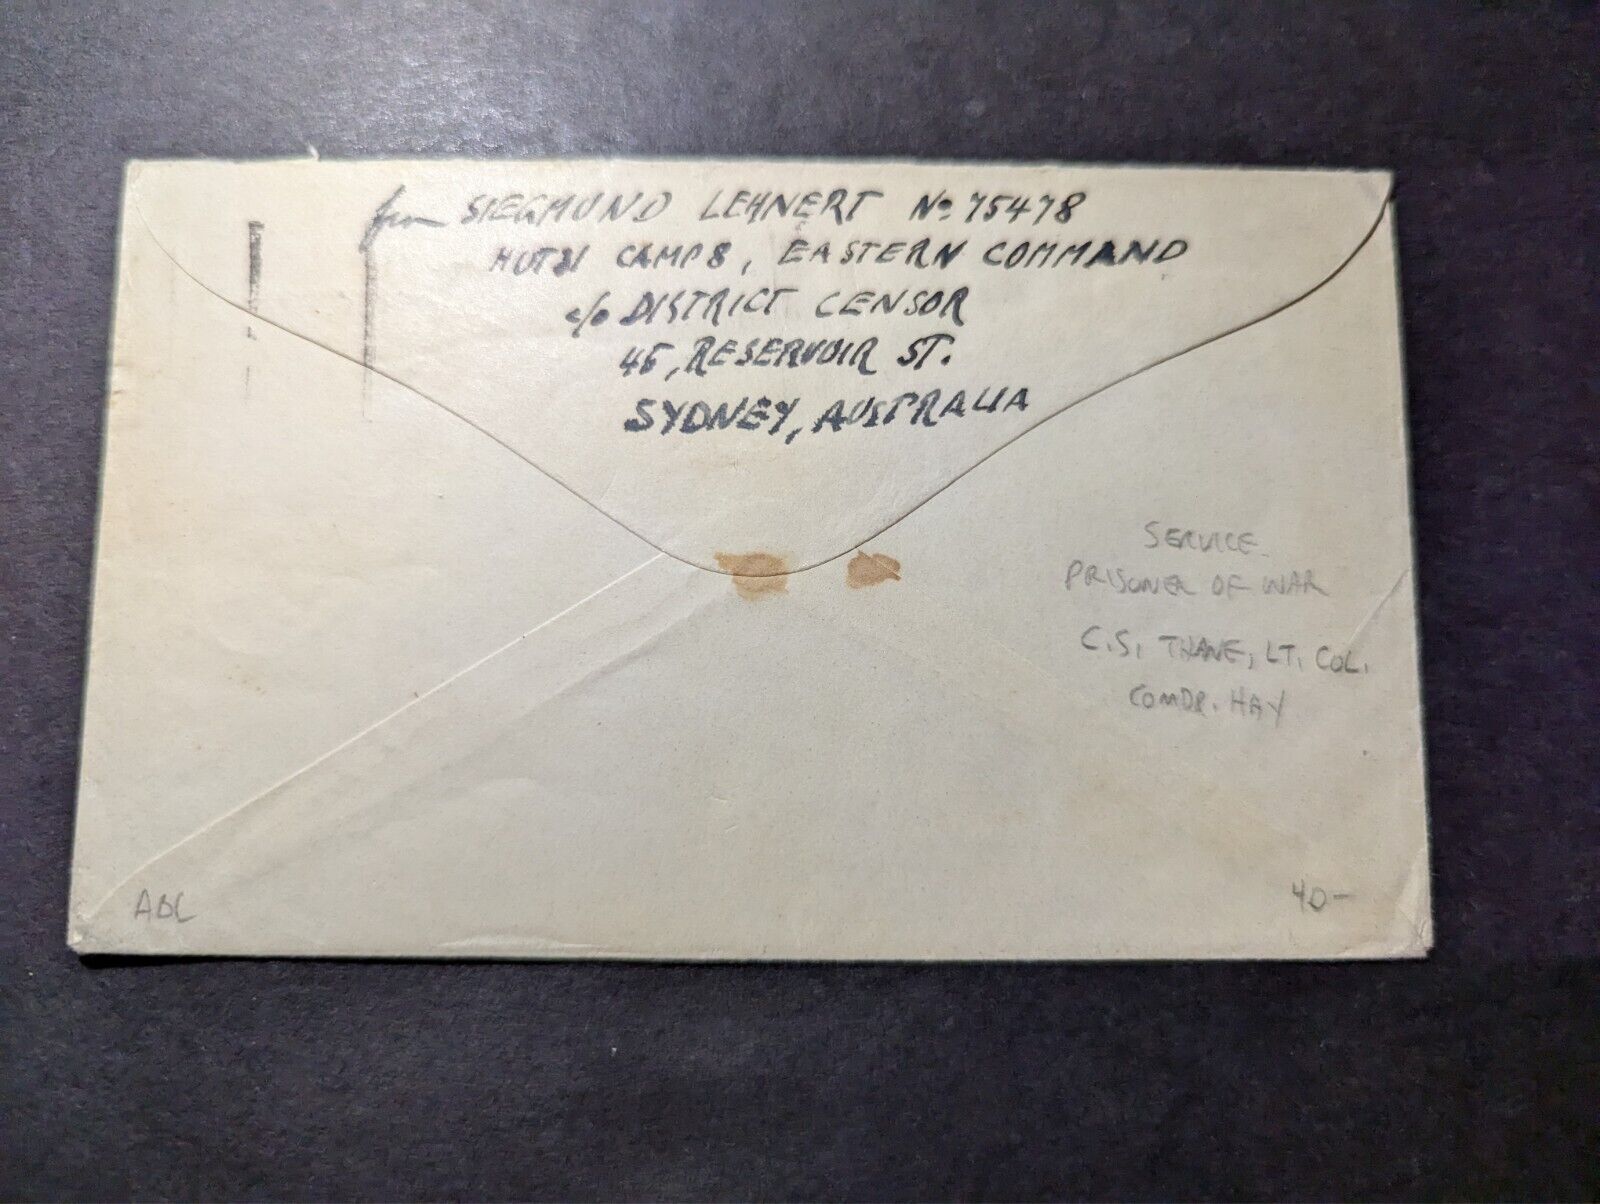 from SIEGMUND LEHNERT No. 75478
HUT 31 CAMP 8, EASTERN COMMAND
c/o DISTRICT CENSOR
45, RESERVOIR ST.
SYDNEY, AUSTRALIA
SERVICE
PRISONER OF WAR
C.S. THANE, LT. COL.
COMDR. HAY
ABC
40-